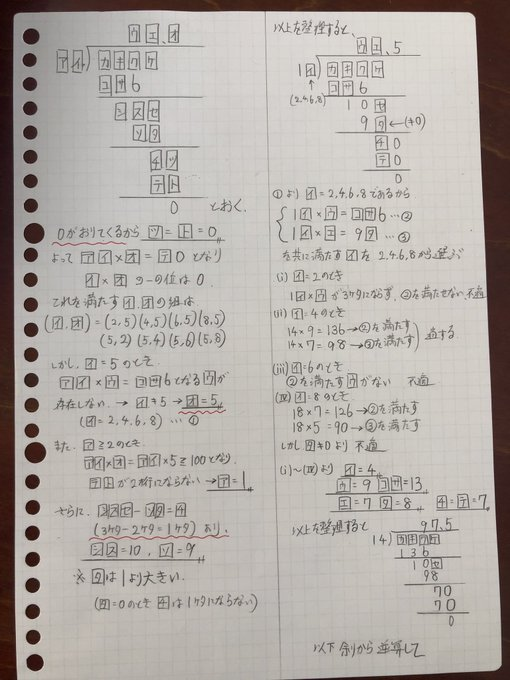 ウエ.オ
アイ)カキクケ
コサ6
シスセ
ソタ
チツ
テト
0 とおく.
0がおりてくるから ツ=ト=0
よって アイ×オ=テ0 となり
イ×オ の一の位は 0.
これを満たす イ,オ の組は
(イ,オ)=(2,5)(4,5)(6,5)(8,5)
(5,2)(5,4)(5,6)(5,8)
しかし、イ=5のとき.
アイ×ウ=コサ6となるウが
存在しない. → イ≠5 → オ=5
(イ=2,4,6,8) … ①
また. ア≧2のとき.
アイ×オ=アイ×5≧100となり.
テトが2桁にならない → ア=1
さらに. シスセ-ソタ=チ
(3ケタ-2ケタ=1ケタ) より、
シス=10, ソ=9
※ タは1より大きい.
(タ=0のとき チは1ケタにならない)
以上を整理すると、
ウエ.5
1イ)カキクケ
(2,4,6,8)
コサ6
10セ
9タ ←(≠0)
チ0
テ0
0
①より イ=2,4,6,8であるから
1イ×ウ=コサ6 … ②
1イ×エ=9タ … ③
を共に満たす イ を 2,4,6,8から選ぶ
(i) イ=2のとき
1イ×ウ が3ケタにならず、②を満たせない.不適
(ii) イ=4のとき
14×9=136→②を満たす
14×7=98→③を満たす
適する.
(iii) イ=6のとき
②を満たす ウ がない 不適
(iv) イ=8のとき
18×7=126→②を満たす
18×5=90→③を満たす
しかし タ≠0より 不適
(i)~(iv)より イ=4
ウ=9 コサ=13
エ=7 タ=8 チ=テ=7
以上を整理すると
97.5
14)カキクケ
136
10セ
98
70
70
0
以下 余りから逆算して